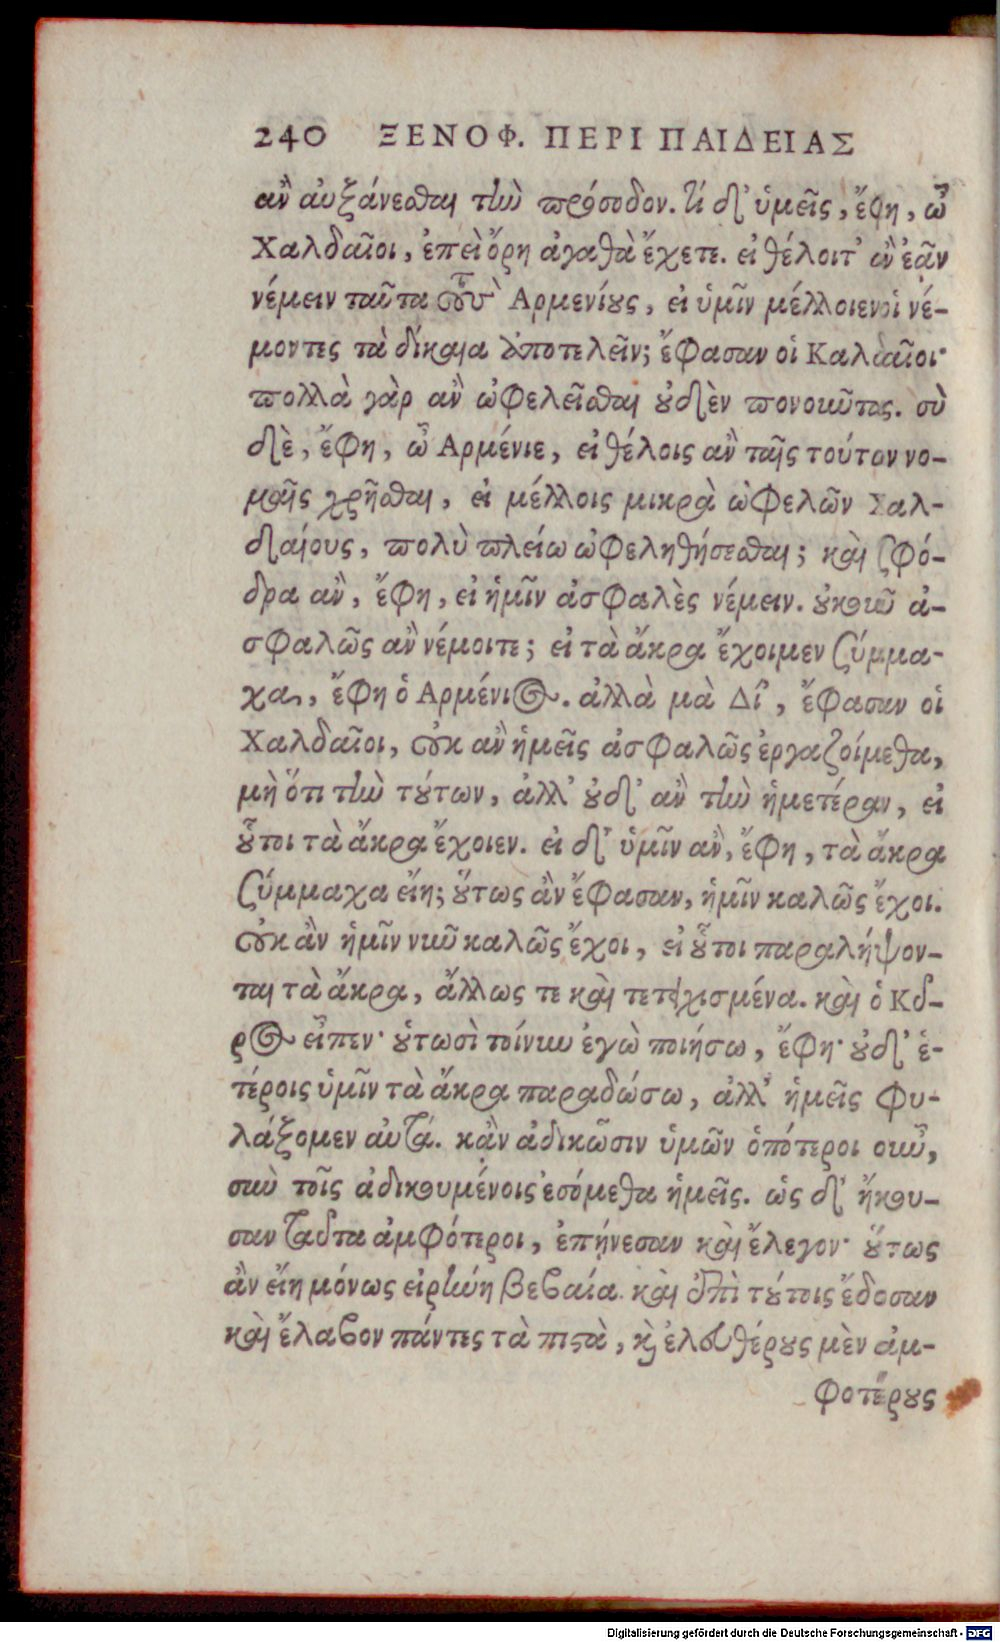 240 ΞΕΝΟΦ. ΠΕΡΙ ΠΑΙΔΕΙΑΣ
ἂν αὐξάνεσθαι τὴν πρόσοδον. τί δ' ὑμεῖς, ἔφη, ὦ
Χαλδαῖοι, ἐπεὶ ὄρη ἀγαθὰ ἔχετε. εἰ θέλοιτ' ἂν ἐᾶν
νέμειν ταῦτα τοὺς Ἀρμενίους, εἰ ὑμῖν μέλλοιεν οἱ νέ-
μοντες τὰ δίκαια ἀποτελεῖν; ἔφασαν οἱ Καλδαῖοι·
πολλὰ γὰρ ἂν ὠφελεῖσθαι οὐδὲν πονοῦντας. σὺ
δὲ, ἔφη, ὦ Ἀρμένιε, εἰ θέλοις ἂν ταῖς τούτων νο-
μαῖς χρῆσθαι, εἰ μέλλοις μικρὰ ὠφελῶν Χαλ-
δαίους, πολὺ πλείω ὠφεληθήσεσθαι; καὶ σφό-
δρα ἂν, ἔφη, εἰ ἡμῖν ἀσφαλὲς νέμειν. οὐκοῦν ἀ-
σφαλῶς ἂν νέμοιτε; εἰ τὰ ἄκρα ἔχοιμεν σύμμα-
χα, ἔφη ὁ Ἀρμένιος. ἀλλὰ μὰ Δί', ἔφασαν οἱ
Χαλδαῖοι, οὐκ ἂν ἡμεῖς ἀσφαλῶς ἐργαζοίμεθα,
μὴ ὅτι τὴν τούτων, ἀλλ' οὐδ' ἂν τὴν ἡμετέραν, εἰ
οὗτοι τὰ ἄκρα ἔχοιεν. εἰ δ' ὑμῖν ἂν, ἔφη, τὰ ἄκρα
σύμμαχα εἴη; οὕτως ἂν ἔφασαν, ἡμῖν καλῶς ἔχοι.
οὐκ ἂν ἡμῖν νῦν καλῶς ἔχοι, εἰ οὗτοι παραλήψον-
ται τὰ ἄκρα, ἄλλως τε καὶ τετειχισμένα. καὶ ὁ Κῦ-
ρος εἶπεν· οὑτωσὶ τοίνυν ἐγὼ ποιήσω, ἔφη· οὐδ' ἑ-
τέροις ὑμῖν τὰ ἄκρα παραδώσω, ἀλλ' ἡμεῖς φυ-
λάξομεν αὐτά. κἂν ἀδικῶσιν ὑμῶν ὁπότεροι οὖν,
σὺν τοῖς ἀδικουμένοις ἐσόμεθα ἡμεῖς. ὡς δ' ἤκου-
σαν ταῦτα ἀμφότεροι, ἐπῄνεσαν καὶ ἔλεγον· οὕτως
ἂν εἴη μόνως εἰρήνη βεβαία. καὶ ἐπὶ τούτοις ἔδοσαν
καὶ ἔλαβον πάντες τὰ πιστὰ, καὶ ἐλευθέρους μὲν ἀμ-
φοτέρους
Digitalisierung gefördert durch die Deutsche Forschungsgemeinschaft - DFG